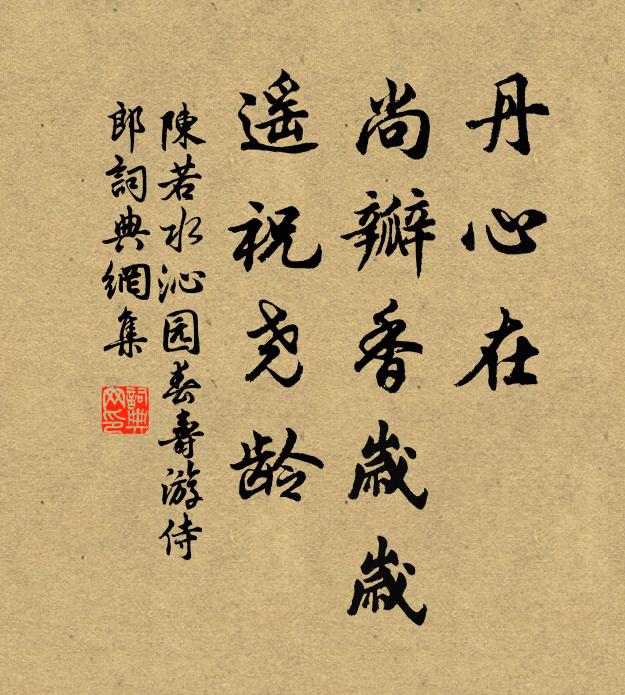 丹心在
尚瓣香歲歲
遥祝尧龄
陳若水沁园春壽游侍
郎詞典網集
詞典
网印